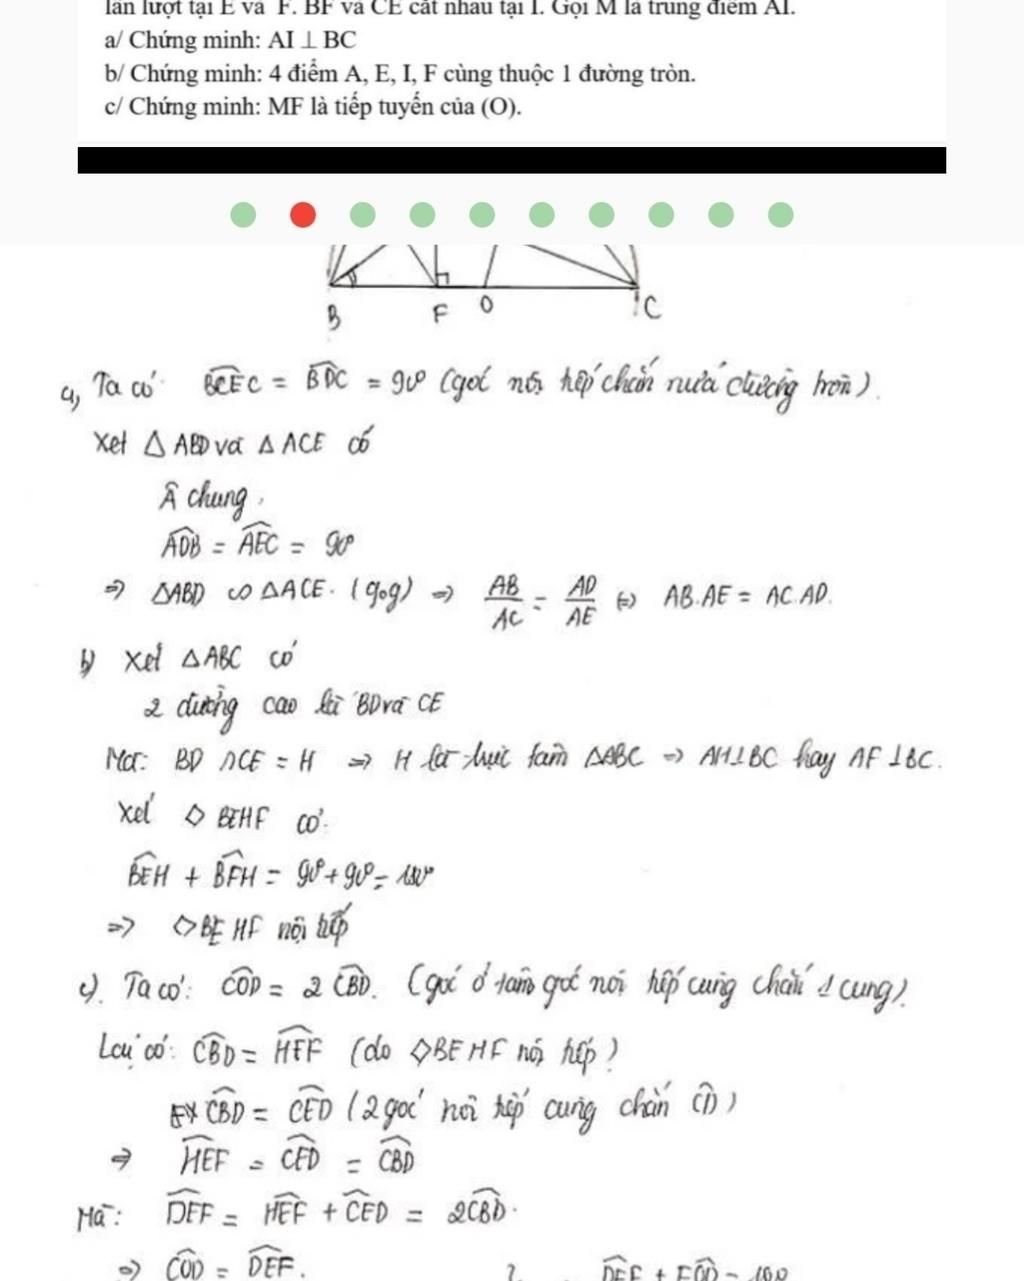 lần lượt tại E và F. BF và CE cắt nhau tại I. Gọi M là trung điểm AI.
a/ Chứng minh: AI ⊥ BC
b/ Chứng minh: 4 điểm A, E, I, F cùng thuộc 1 đường tròn.
c/ Chứng minh: MF là tiếp tuyến của (O).
B F O C
a, Ta có BEC = BDC = 90° (góc nội tiếp chắn nửa đường tròn).
Xét △ ABD và △ ACE có
Â chung.
ADB = AEC = 90°
=> △ABD ∽ △ACE. (g.g) => AB/AC = AD/AE <=> AB.AE = AC.AD.
b) Xét △ABC có
2 đường cao là BD và CE
Mà: BD ∩ CE = H => H là trực tâm △ABC => AH⊥BC hay AF⊥BC.
Xét ◇ BEHF có:
BEH + BFH = 90° + 90° = 180°
=> ◇BEHF nội tiếp
c). Ta có: COD = 2 CBD. (góc ở tâm góc nội tiếp cùng chắn 1 cung).
Lại có: CBD = HEF (do ◇BEHF nội tiếp)
CBD = CED (2 góc nội tiếp cùng chắn CD)
=> HEF = CED = CBD
Mà: DEF = HEF + CED = 2CBD.
=> COD = DEF.